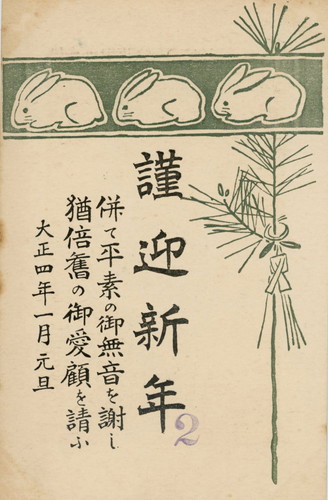 謹迎新年
併て平素の御無音を謝し
猶倍舊の御愛顧を請ふ
大正四年一月元旦
2